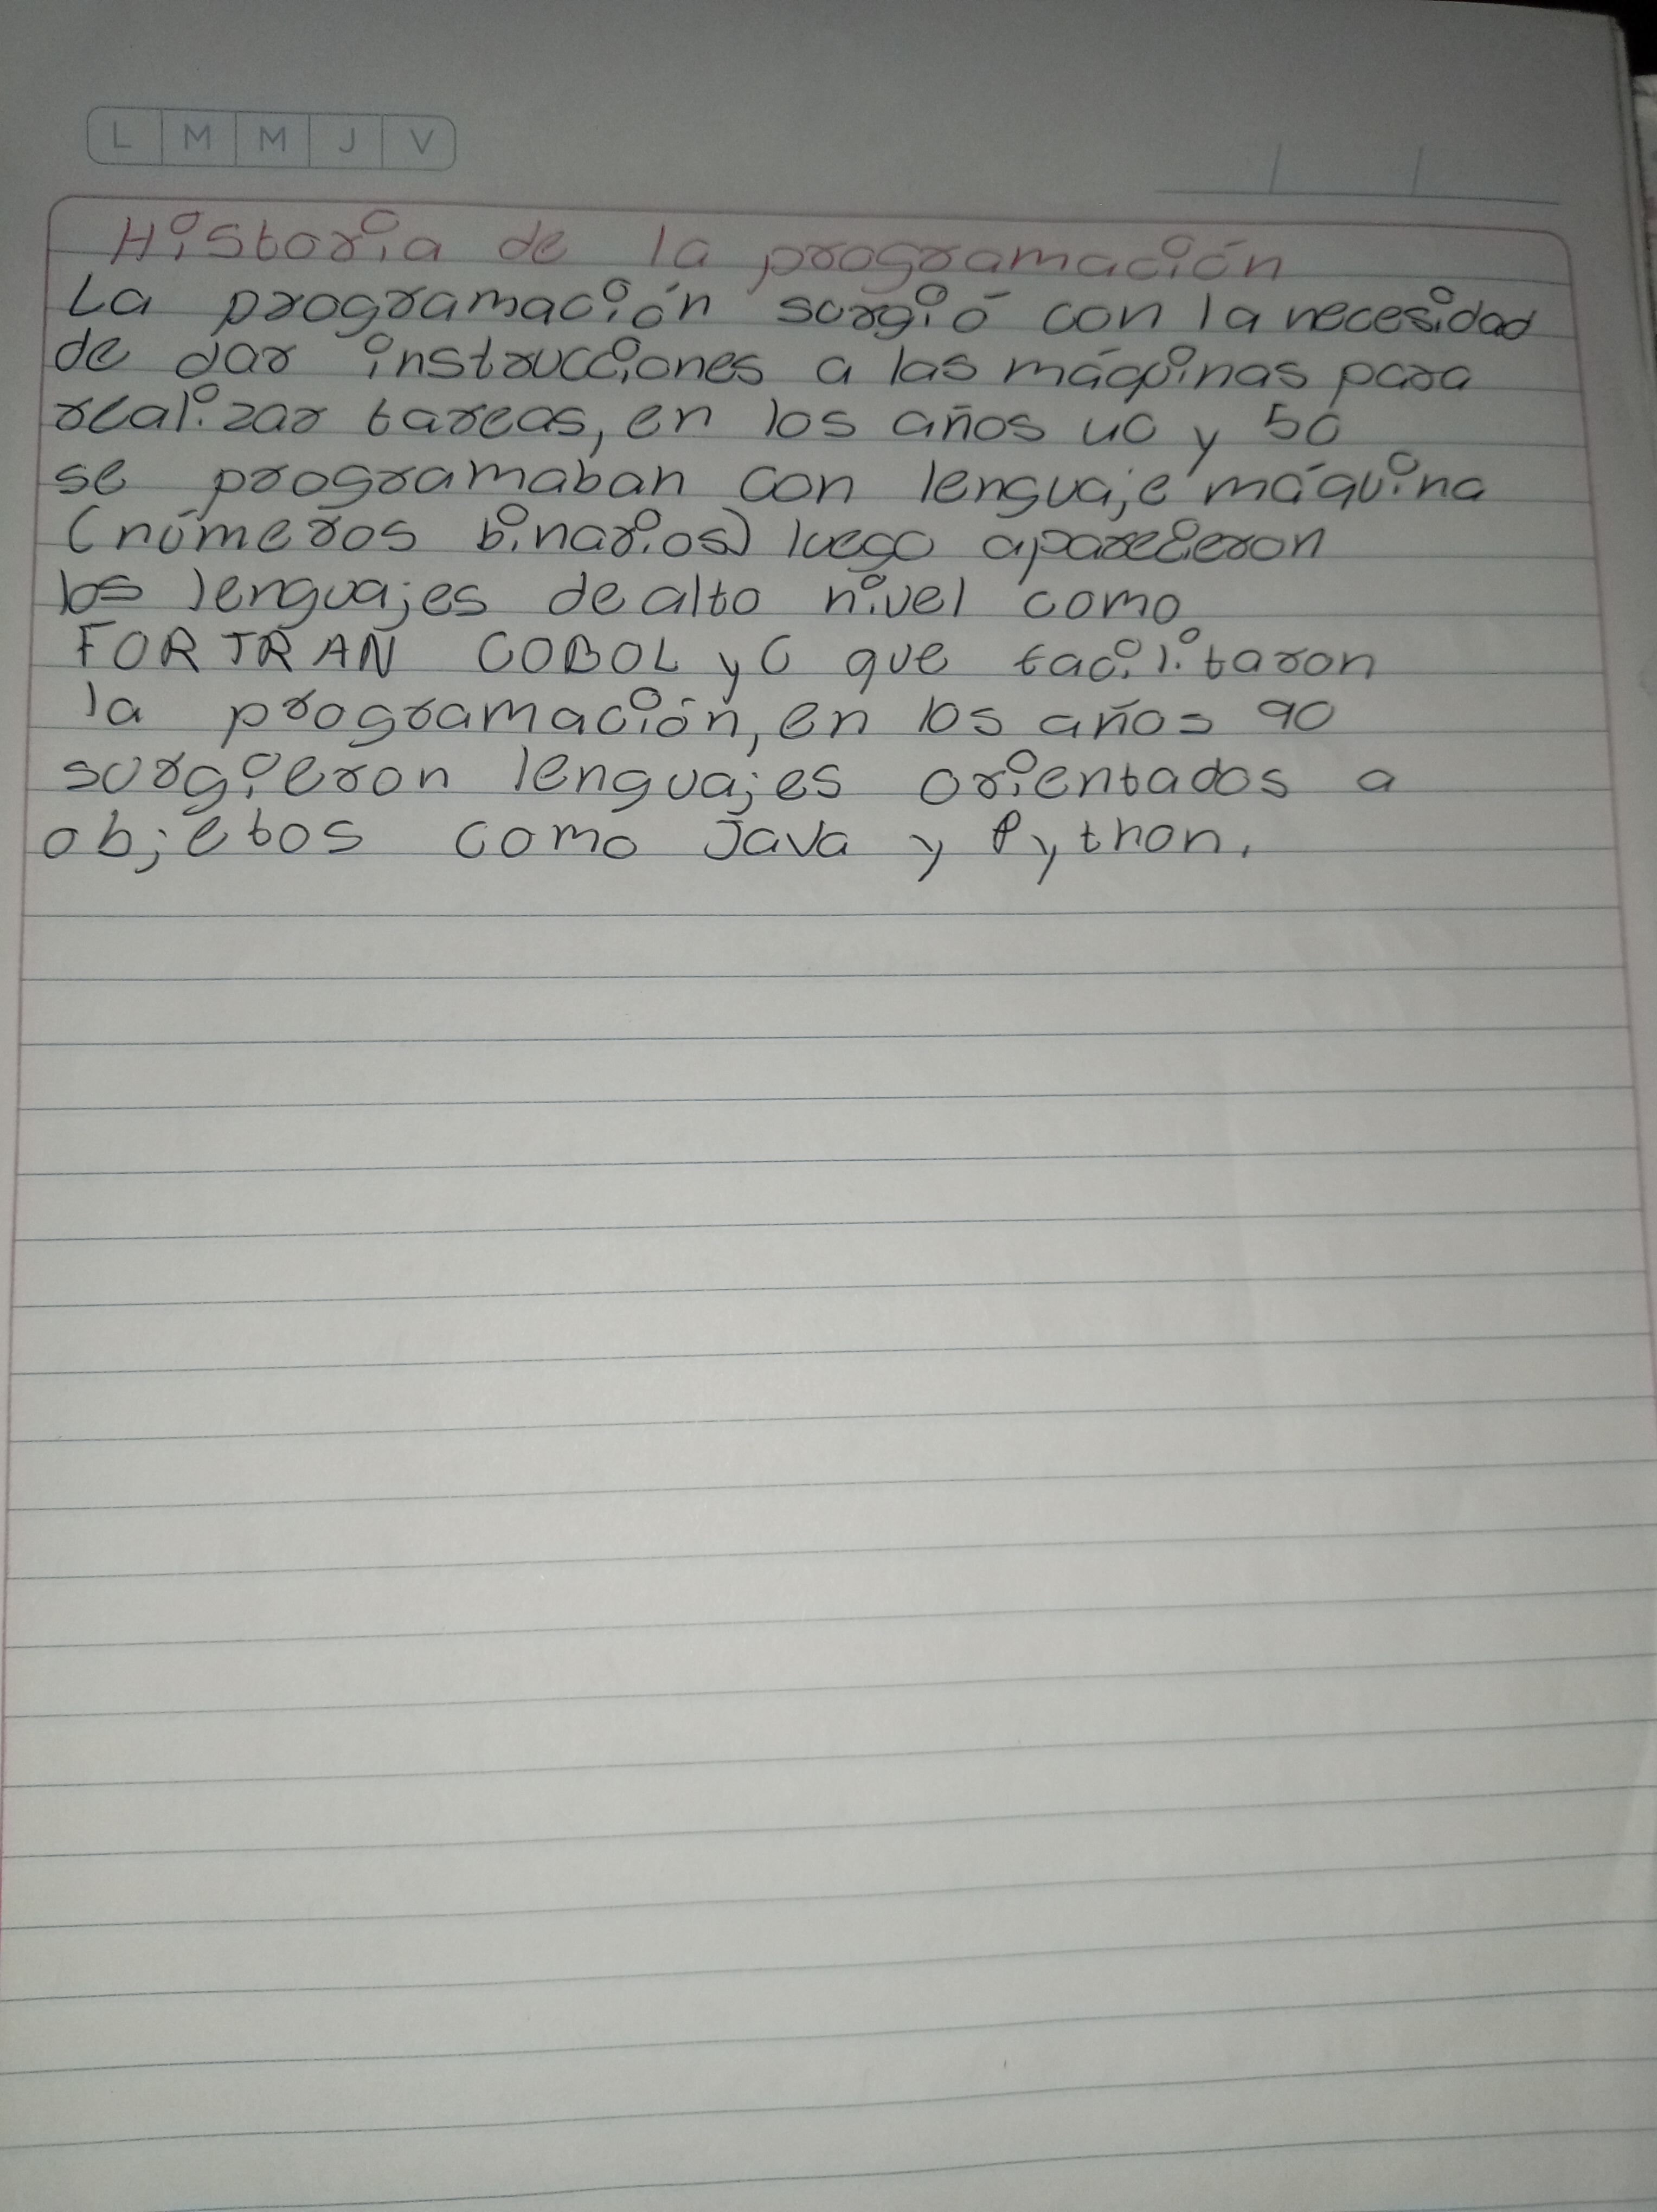 L M M J V
Historia de la programación
La programación surgió con la necesidad
de dar instrucciones a las máquinas para
realizar tareas, en los años 40 y 50
se programaban con lenguaje máquina
(números binarios) luego aparecieron
los lenguajes de alto nivel como
FORTRAN COBOL y C que facilitaron
la programación, en los años 90
surgieron lenguajes orientados a
objetos como Java y Python.